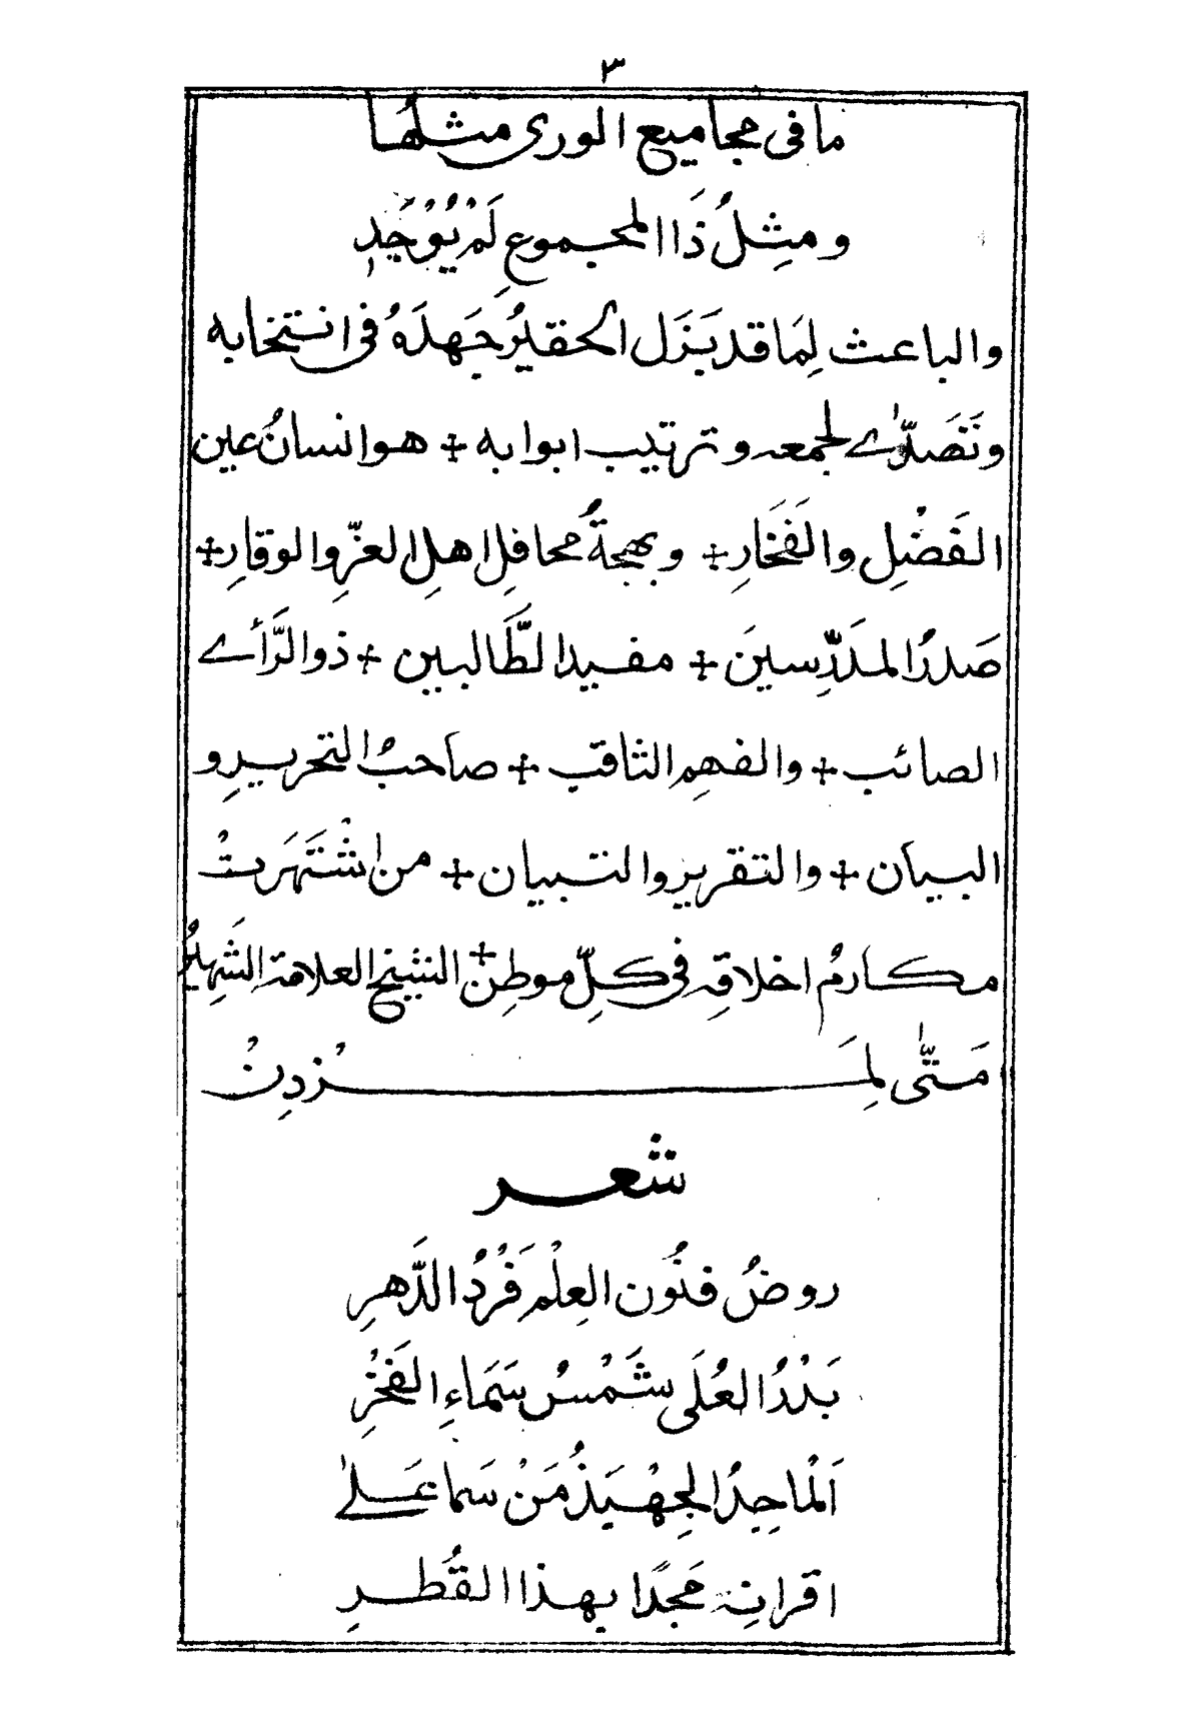 ٣
ما فى مجاميع الورى مثلها
ومثِلُ ذَا المجموعِ لَمْ يُوْجَدِ
والباعث لِمَا قد بَذَل الحقيرُ جَهدَهُ فى انتخابه
ونَصَدّٰے لجمعه وترتيب ابوابه + هو انسانُ عين
الفَضْلِ والفَخَارِ + وبهجةُ محافلِ اهلِ العزِّ والوقارِ +
صَدرُ المدَرِّسينَ + مفيد الطَّالبين + ذو الرَّأے
الصائب + والفهمِ الثاقب + صاحبُ التحريرِ و
البيان + والتقرير والتبيان + من اشْتَهَرتْ
مكارمُ اخلاقِه فى كلِّ موطنٍ + الشيخ العلامة الشَهِيرُ
مَتّٰى لِمَــزُدِنْ
شعر
روضُ فنُون العِلْمِ فَرْدُ الدَّهرِ
بَدْرُ العُلَى شَمْسُ سَمَاءِ الفَخْرِ
اَلْماجِدُ الجِهْبَذُ مَنْ سَما عَلىٰ
اقرانِه مَجدًا بهذا القُطرِ